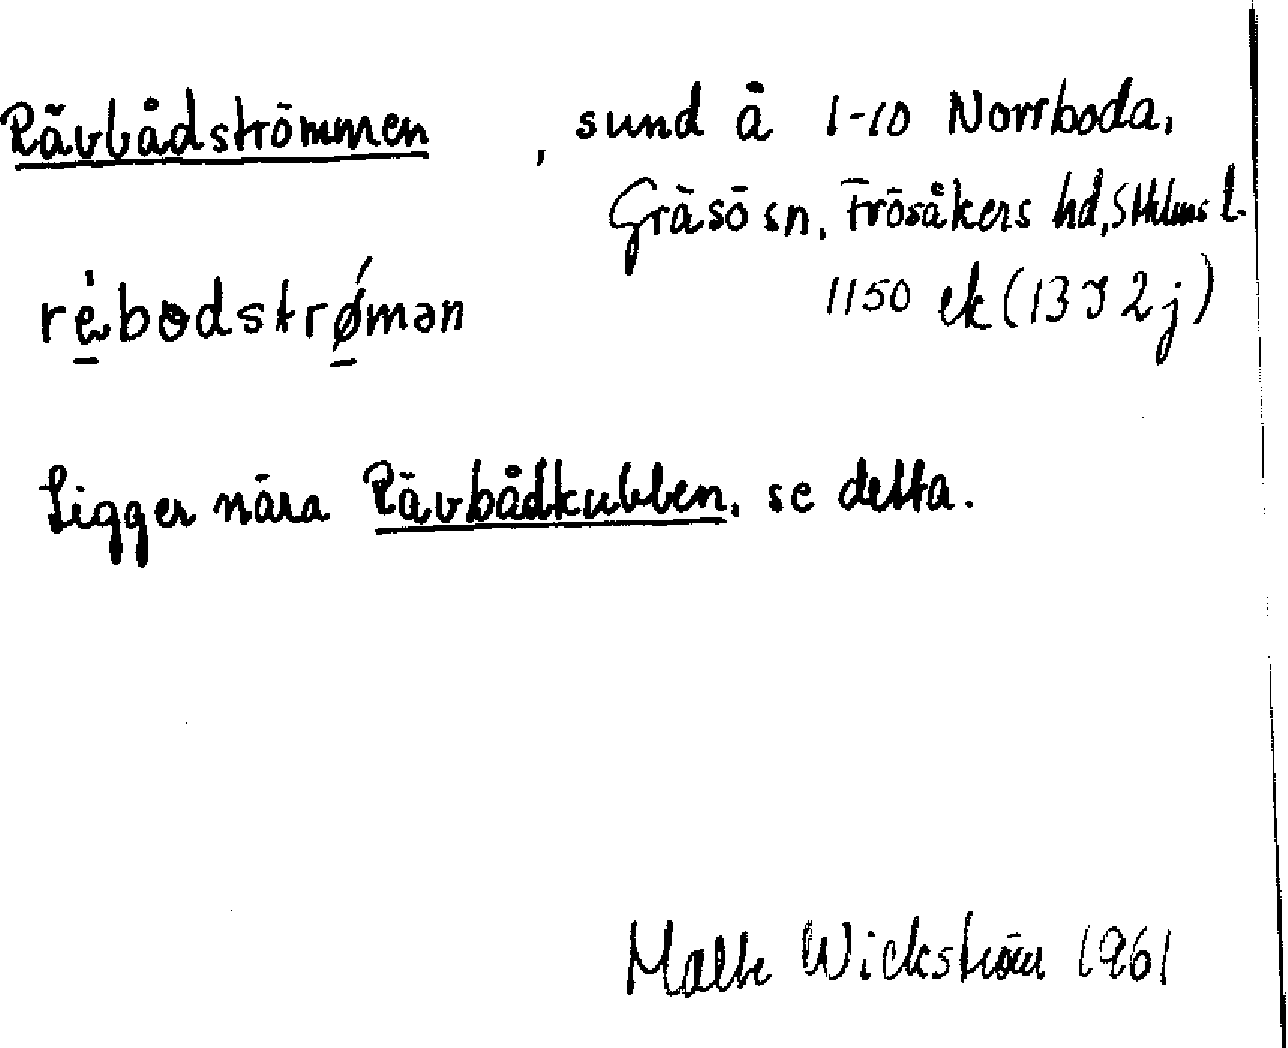 Rävbådströmmen, sund å 1-10 Norrboda,
Gräsö sn, Frösåkers hd, Sthlms l.
1150 ek (13 I 2 j)
rè̱bɷdstrǿ̱mən
Ligger nära Rävbådkubben, se detta.
Malte Wickström 1961